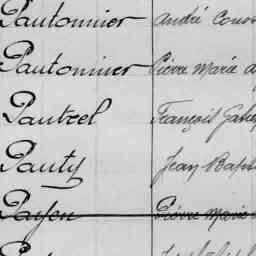 Pautonnier André
Pautonnier Pierre Marie
Pautrel François
Pauty Jean Bapti
Payen Pierre Marie